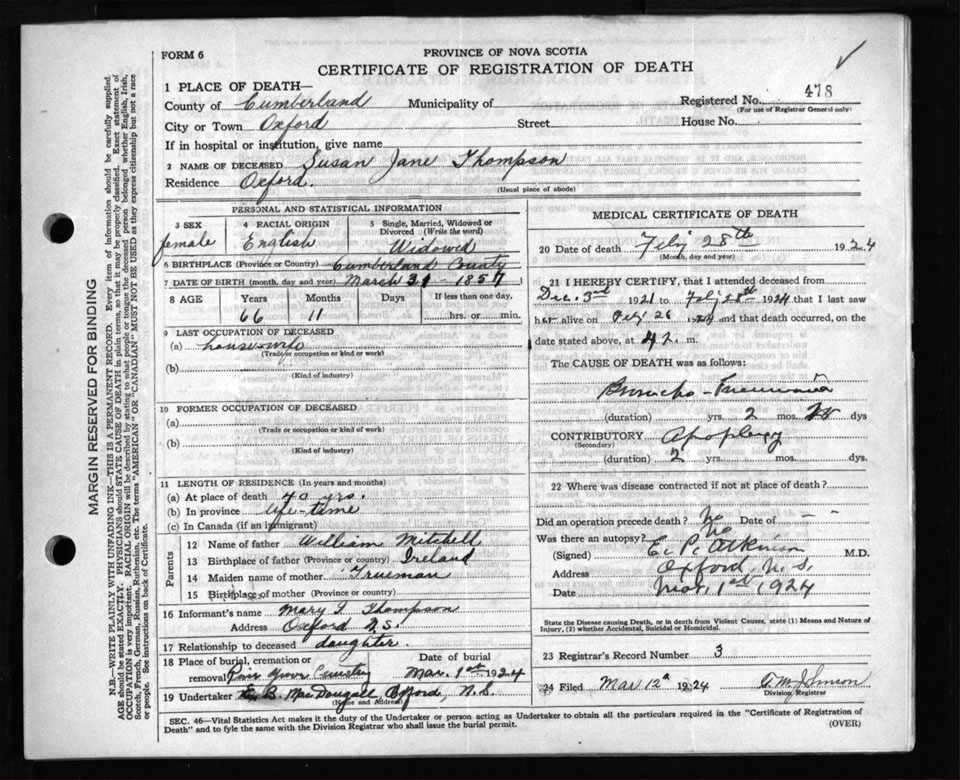 FORM 6
PROVINCE OF NOVA SCOTIA
CERTIFICATE OF REGISTRATION OF DEATH
1 PLACE OF DEATH—
County of Cumberland Municipality of Registered No. 478
(For use of Registrar General only)
City or Town Oxford Street House No.
If in hospital or institution, give name
2 NAME OF DECEASED Susan Jane Thompson
Residence Oxford.
(Usual place of abode)
PERSONAL AND STATISTICAL INFORMATION
3 SEX 4 RACIAL ORIGIN 5 Single, Married, Widowed or Divorced (Write the word)
female English Widowed
6 BIRTHPLACE (Province or Country) Cumberland County
7 DATE OF BIRTH (month, day, and year) March 31 - 1857
8 AGE Years Months Days If less than one day,
66 11 hrs. or min.
9 LAST OCCUPATION OF DECEASED
(a) house-wife
(Trade or occupation or kind or work)
(b)
(Kind of industry)
10 FORMER OCCUPATION OF DECEASED
(a)
(Trade or occupation or kind or work)
(b)
(Kind of industry)
11 LENGTH OF RESIDENCE (In years and months)
(a) At place of death 40 yrs.
(b) In province life-time
(c) In Canada (if an immigrant)
Parents
12 Name of father William Mitchell
13 Birthplace of father (Province or country) Ireland
14 Maiden name of mother Trueman
15 Birthplace of mother (Province or country)
16 Informant's name Mary I. Thompson
Address Oxford N.S.
17 Relationship to deceased daughter.
18 Place of burial, cremation or Date of burial
removal Pine Grove Cemetery Mar. 1st 1924
19 Undertaker E. B. MacDougall Oxford, N.S.
(Name and Address)
MEDICAL CERTIFICATE OF DEATH
20 Date of death Feby 28th 1924
(Month, day and year)
21 I HEREBY CERTIFY, that I attended deceased from
Dec. 3rd 1921 to Feby 28th 1924 that I last saw
her alive on Feby 28 and that death occurred, on
the date stated above, at m.
The CAUSE OF DEATH was as follows:
Broncho-Pneumonia
(duration) yrs. 2 mos. dys
CONTRIBUTORY Apoplexy
(Secondary)
(duration) 2 yrs. mos. dys.
22 Where was disease contracted if not at place of death?
Did an operation precede death? No Date of
Was there an autopsy? No
(Signed) E. P. Atkinson M.D.
Address Oxford, N.S.
Date Mar. 1st, 1924
State the Disease causing Death, or in death from Violent Causes, state (1) Means and Nature of
Injury, (2) whether Accidental, Suicidal or Homicidal.
23 Registrar's Record Number 3
24 Filed Mar 12th 1924
Division Registrar
SEC. 46—Vital Statistics Act makes it the duty of the Undertaker or person acting as Undertaker to obtain all the particulars required in the "Certificate of Registration of
Death" and to fyle the same with the Division Registrar who shall issue the burial permit. (OVER)
MARGIN RESERVED FOR BINDING
N.B.—WRITE PLAINLY WITH UNFADING INK—THIS IS A PERMANENT RECORD. Every item of information should be carefully supplied.
AGE should be stated EXACTLY. PHYSICIANS should STATE CAUSE OF DEATH in plain terms, so that it may be properly classified. Exact statement of
OCCUPATION is very important. RACIAL ORIGIN will be described by stating to what people or tongue the deceased person belonged whether English, Irish,
Scotch, French, German, Russian, Ruthenian, etc. The terms "AMERICAN" or "CANADIAN" MUST NOT BE USED as they express citizenship but not a race
or people. See instructions on back of Certificate.